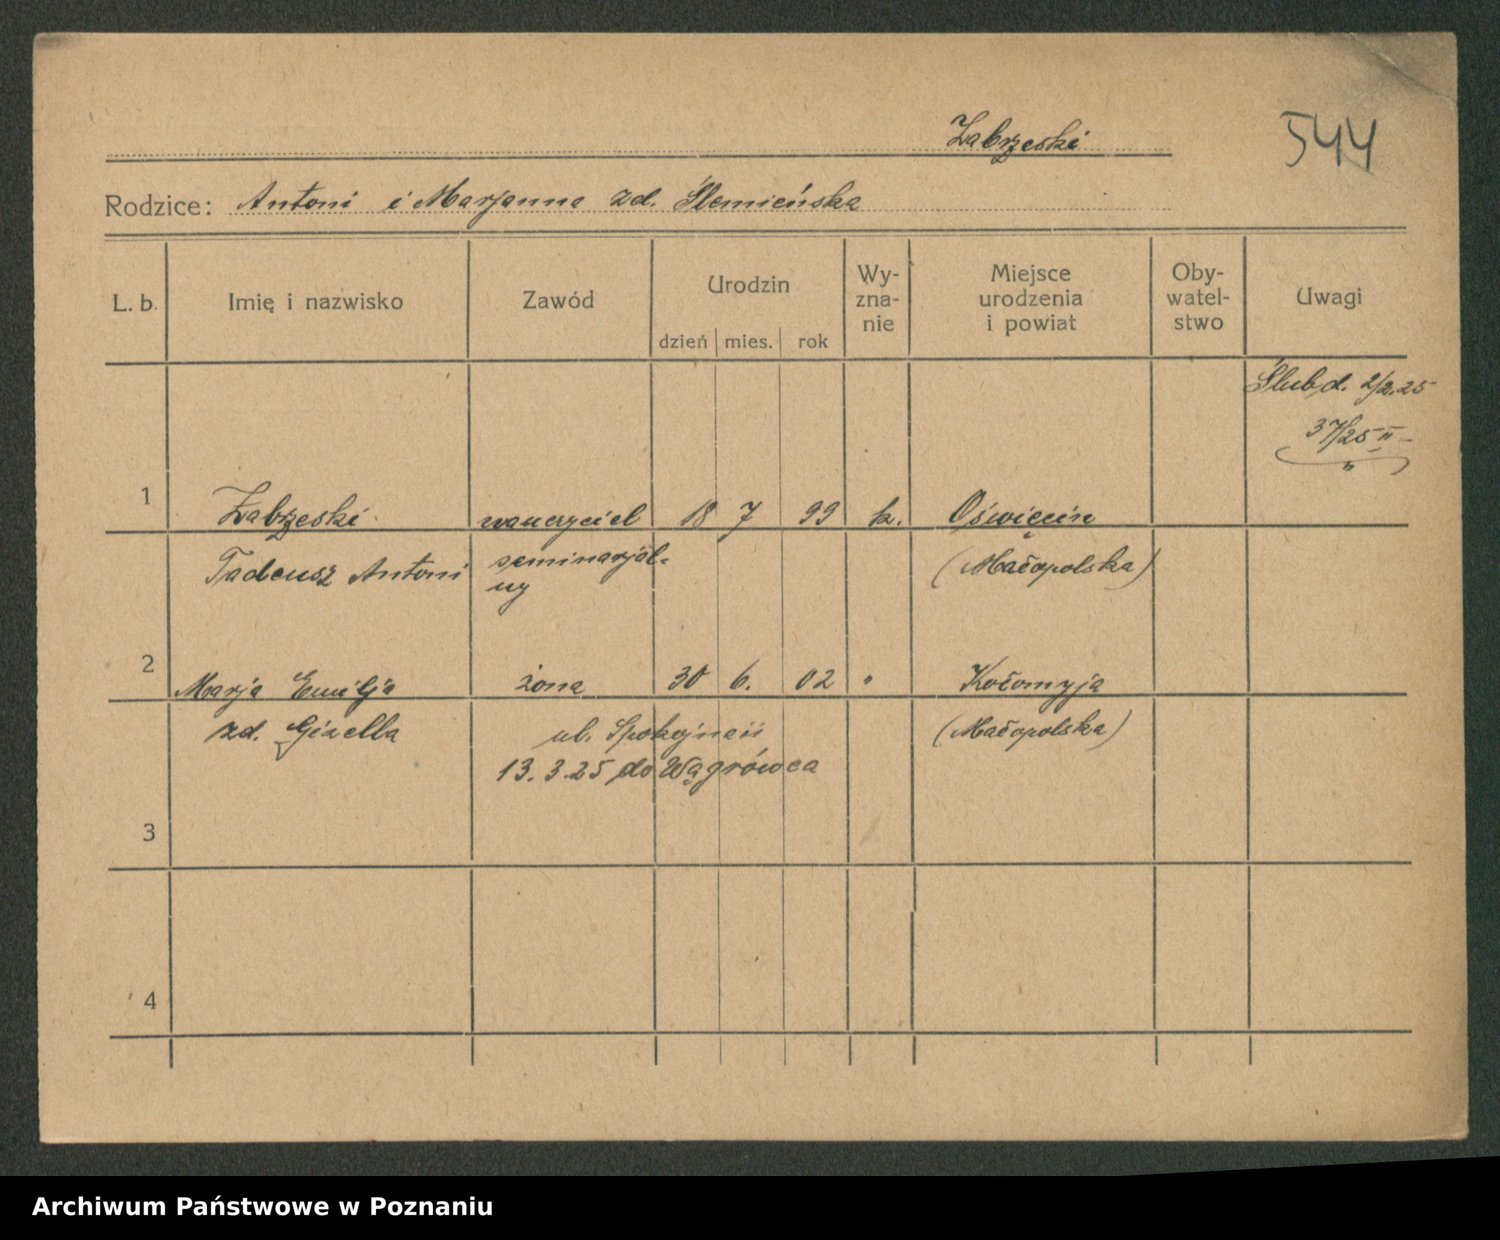 Zabrzeski
544
Rodzice: Antoni i Marjanna zd. Ślemieńska
L. b.
Imię i nazwisko
Zawód
Urodzin
dzień mies. rok
Wy-
zna-
nie
Miejsce
urodzenia
i powiat
Oby-
watel-
stwo
Uwagi
Ślub d. 2/2.25
37/25 II
1 Zabrzeski nauczyciel 18 7 99 k. Oświęcim
Tadeusz Antoni seminarjal-
ny
(Małopolska)
2 Marja Emilja żona 30 6. 02 " Kołomyja
zd. Gizella ul. (Małopolska)
13.3.25 do Wągrówca
3
4
Archiwum Państwowe w Poznaniu